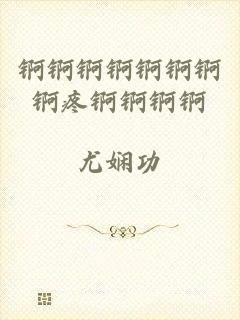 锕锕锕锕锕锕锕
锕疼锕锕锕锕
尤娴功